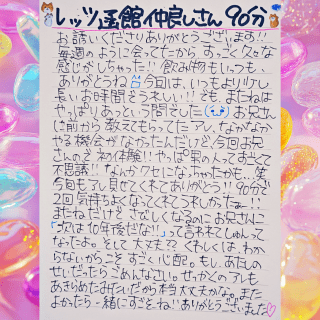 レッツ函館仲良しさん90分
お誘いくださりありがとうございます!!
毎週のように会ってたから、すっごく久々な
感じがしちゃった!! 飲み物もいっつも、
ありがとうね 今回は、いつもより少し
長いお時間うれしい!! でも、またねは
やっぱりあっという間でした お兄さん
に前から教えてもらってたアレ、なかなか
やる機会がなかったんだけど、今回お兄
さんのを初体験!! やっぱ男の人っておしりって
不思議!! なんかクセになっちゃったかも…笑
今回もアレ見せてくれてありがとう!! 90分で
2回気持ちよくなってくれてうれしかったぁー!!
またねだけど、さびしくなるのにお兄さんに
「次は10年後だな!!」って言われてしゅんって
なったよ。そして大丈夫?? くわしくは、わか
らないからこそすっごく心配。もし、あたしの
せいだったらごめんなさい。せっかくのアレも
あきらめたみたいだから本当大丈夫かな。また
よかったら一緒にすごそーね!! ありがとうございました